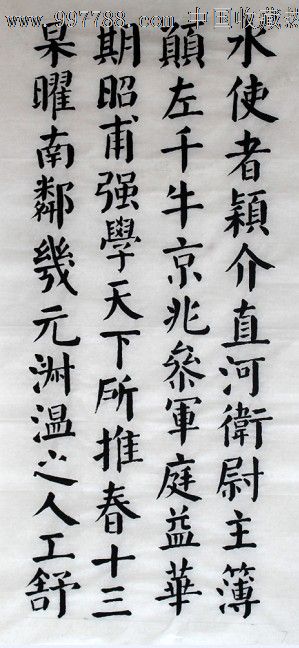 www.997788.com 中国收藏热
水使者穎介直河衛尉主簿
願左千牛京兆叅軍庭益華
期昭甫强學天下所推春十三
杲曜南鄰幾元淑温之人工舒